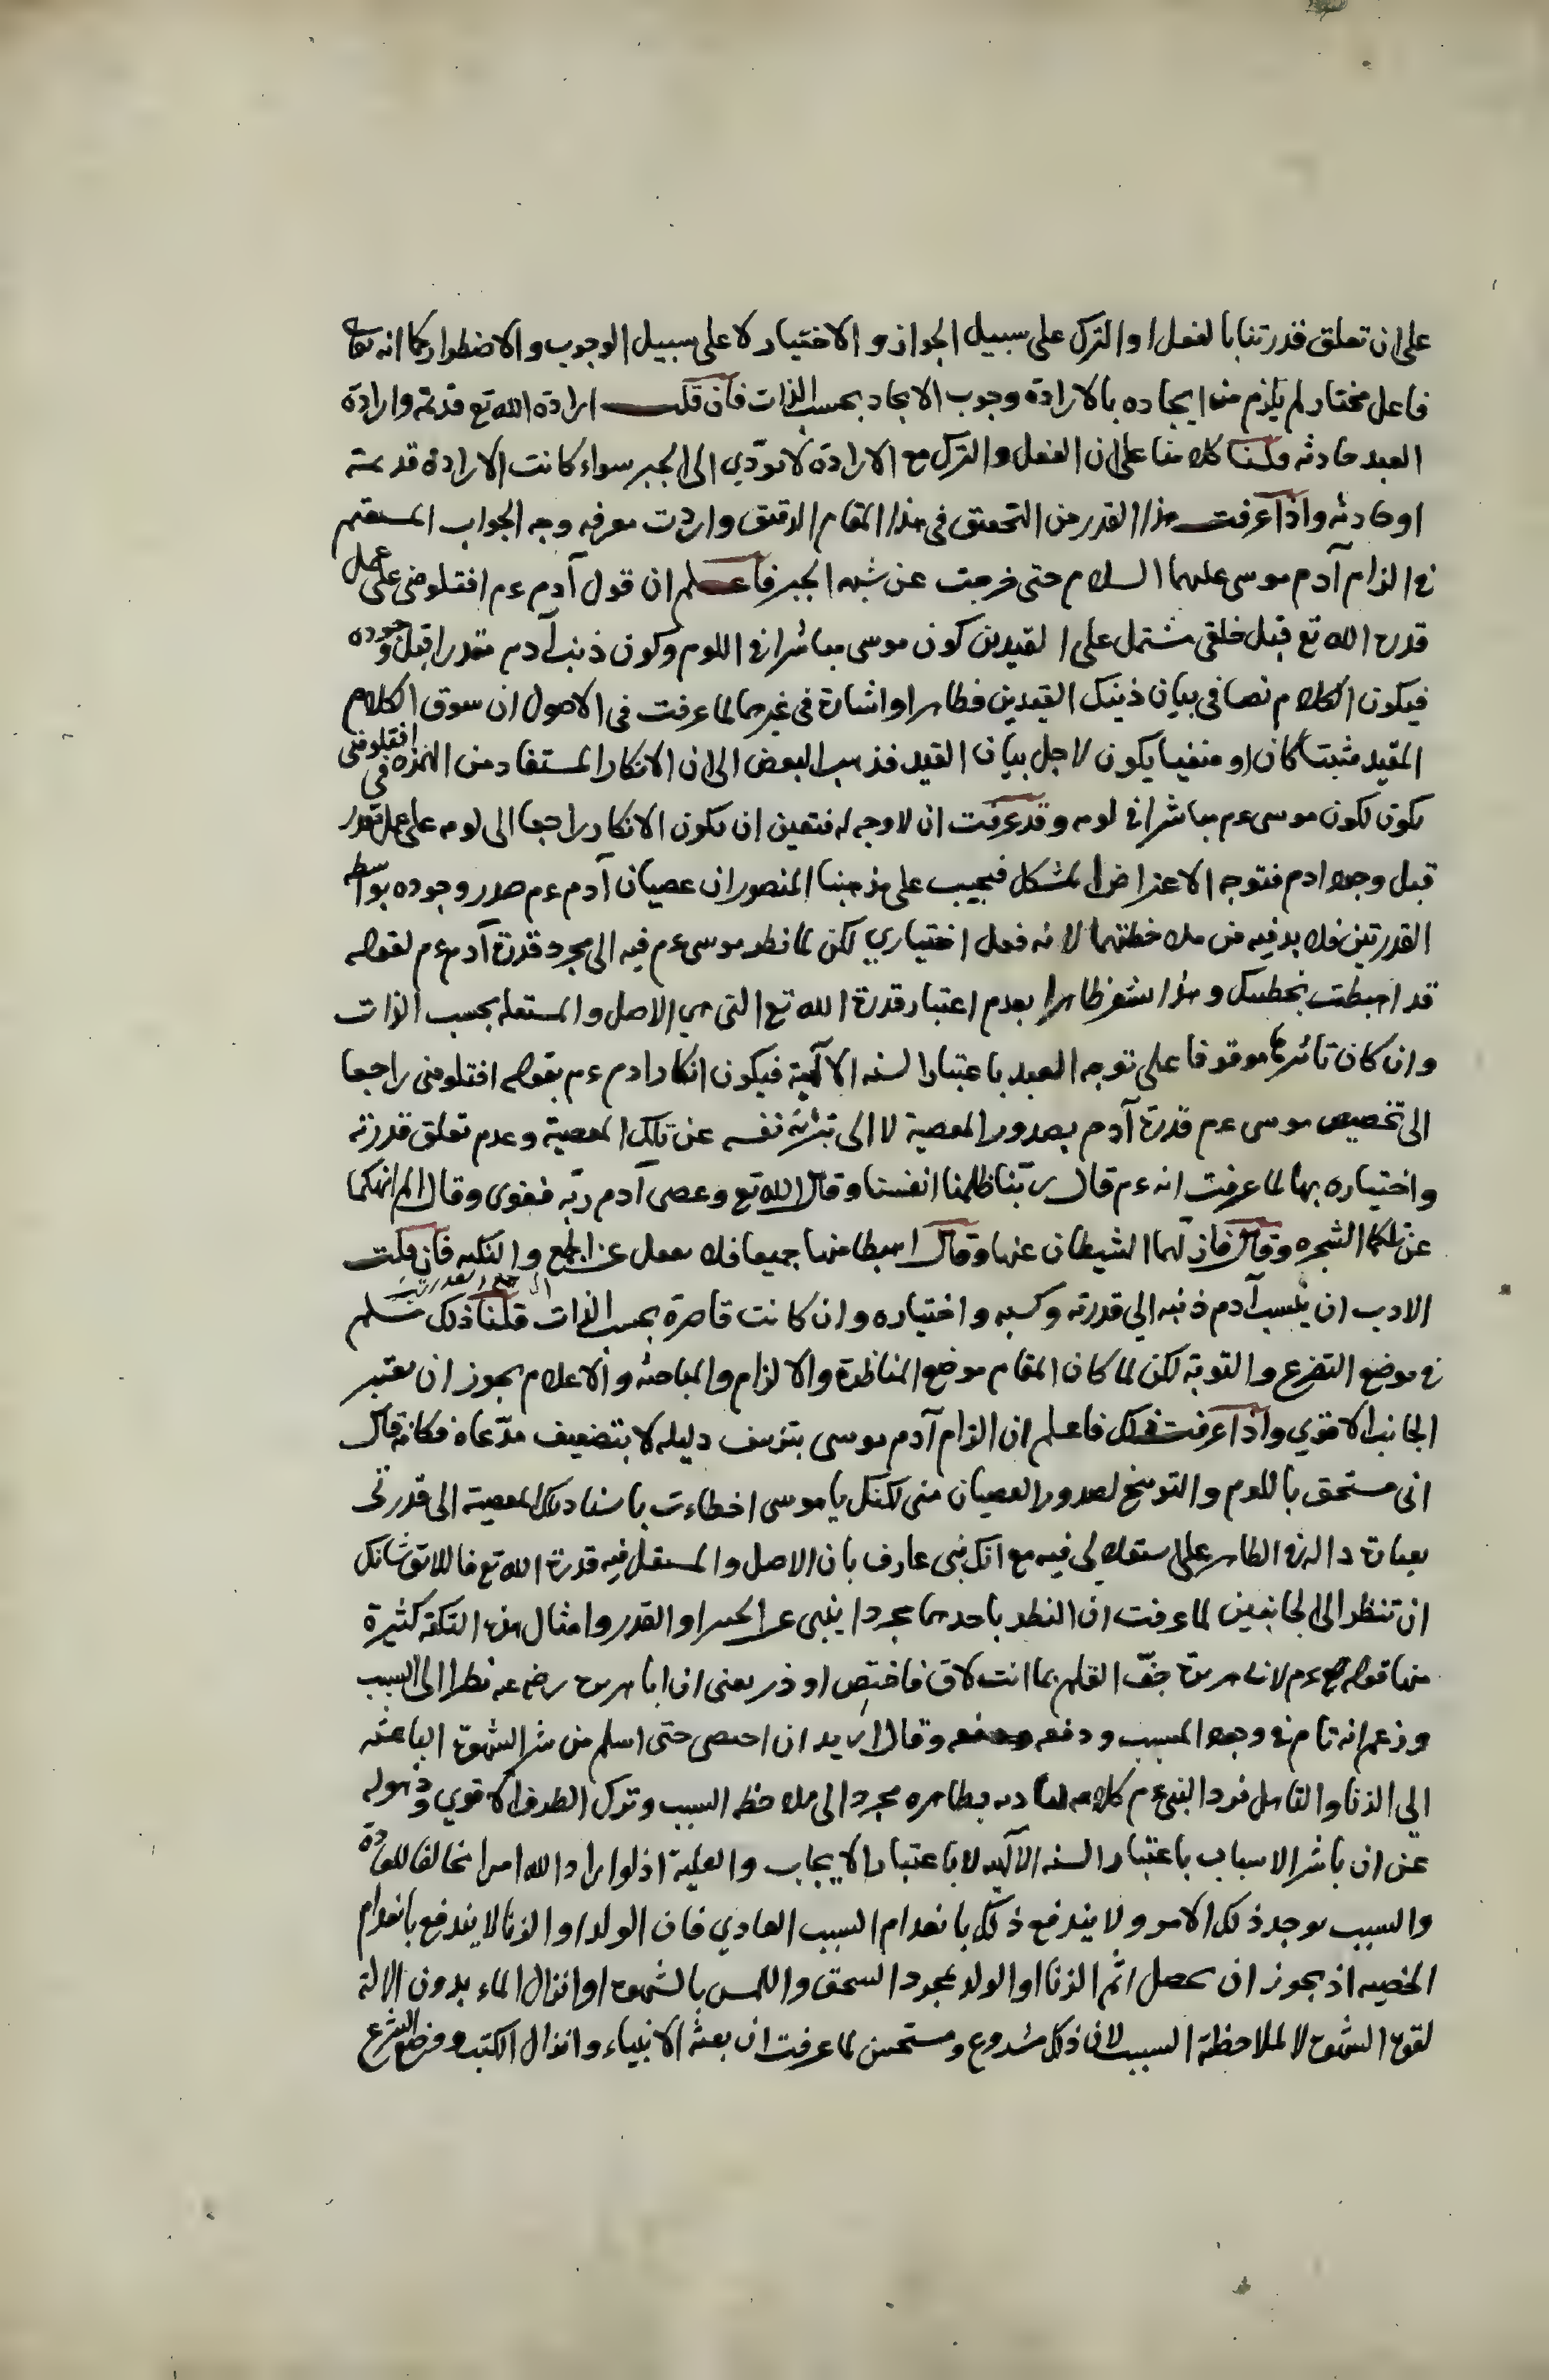 على ان تعلق قدرتنا بالفعل او الترك على سبيل الجواز و الاختيار لا على سبيل الوجوب و الاضطرار كما انه تعالى
فاعل مختار لم يلزم من ايجاده بالارادة وجوب الايجاد بحسب الذات فان قلت ارادة الله تع قديمة وارادة
العبد حادثه قلنا كلامنا على ان الفعل والترك مع الارادة لا تؤدي الى الجبر سواء كانت الارادة قديمة
او حادثه واذا عرفت هذا القدر من التحقيق في هذا المقام الدقيق واردت معرفه وجه الجواب المستقيم
في الزام آدم موسى عليهما السلام حتى خرجت عن شبه الجبر فاعلم ان قول آدم ءم افتلومني على عمل
قدره الله تع قبل خلقي مشتمل على القيدين كون موسى مباشرا في اللوم وكون ذنب آدم مقدرا قبل وجوده
فيكون الكلام نصا في بيان ذينك القيدين وظاهرا واشارة في غيرهما لما عرفت في الاصول ان سوق الكلام
المقيد مثبتا كان او منفيا يكون لاجل بيان القيد فذهب البعض الى ان الانكار المستفاد من الهمزة في افتلومني
يكون لكون موسى ءم مباشرا في لومه وقد عرفت ان لا وجه له فتعين ان يكون الانكار راجعا الى لومه على عمل مقدر
قبل وجود ادم فتوجه الاعتراض المشكل فيجيب على مذهبنا المنصور ان عصيان آدم ءم صدر وجوده بواسطه
القدرتين فلا بد فيه من ملاحظتهما لانه فعل اختياري لكن لما نظر موسى ءم فيه الى مجرد قدرة آدم ءم لقوله
قد اهبطت بخطيتك وهذا يشعر ظاهرا بعدم اعتبار قدرة الله تع التي هي الاصل والمستقله بحسب الذات
وان كان تاثيرها موقوفا على توجه العبد باعتبار السنه الالهية فيكون انكار ادم ءم بقوله افتلومني راجعا
الى تخصيص موسى ءم قدرة آدم بصدور المعصية لا الى تبرئة نفسه عن تلك المعصية وعدم تعلق قدرته
واختياره بها لما عرفت انه ءم قال ربنا ظلمنا انفسنا وقال الله تع وعصى آدم ربه فغوى وقال الم انهكما
عن تلكما الشجره وقال فازلهما الشيطان عنها وقال اهبطا منها جميعا فلا عن الجمع و فان قلت
الادب ان ينسب آدم ذنبه الي قدرته وكسبه واختياره وان كانت قاصرة بحسب الذات قلنا ذلك مسلم
في موضع التضرع والتوبة لكن لما كان المقام موضع المناظرة والالزام والمباحثه والاعلام يجوز ان يعتبر
الجانب الاقوي واذا عرفت هذا كله فاعلم ان الزام آدم موسى بتزييف دليله لا بتضعيف مدعاه فكانه قال
انى مستحق باللوم والتوبيخ لصدور العصيان مني لكنك يا موسى اخطاءت باسناد تلك المعصية الى قدرتى
بعبارة دالة في الظاهر على استقلالي فيه مع انك نبي عارف بان الاصل والمستقل فيه قدرة الله تع فاللايق شانك
ان تنظر الى الجانبين لما عرفت ان النظر باحدهما مجردا ينبى عن الجبر او القدر وامثال هذه النكتة كثيرة
منها قوله صع ءم لابي هريرة جف القلم بما انت لاق فاختص او ذر يعنى ان ابا هريرة رضى عنه نظر الى السبب
وزعم انه تام في وجود المسبب ودفعه وقال اريد ان اختصى حتى اسلم من شر الشهوة الباعثه
الي الزنا والتاهل فرد النبي ءم كلامه بظاهره مجردا الى ملاحظه السبب وترك الطرف الاقوي وذهوله
عن ان باشر الاسباب باعتبار السنه الالهيه لا باعتبار الايجاب والعلية اذ لو اراد الله امرا مخالفا للعادة
والسبب يوجد ذلك الامر ولا يندفع ذلك بانعدام السبب العادي فان الولد او الزنا لا يندفع بانعدام
الخصيه اذ يجوز ان يحصل اثم الزنا او الولد بمجرد السحق واللمس بالشهوة او انزال الماء بدون الالة
لقوة الشهوة لا لملاحظة السبب لان ذلك مشروع ومستحسن لما عرفت ان بعثة الانبياء وانزال الكتب ووضع الشرع